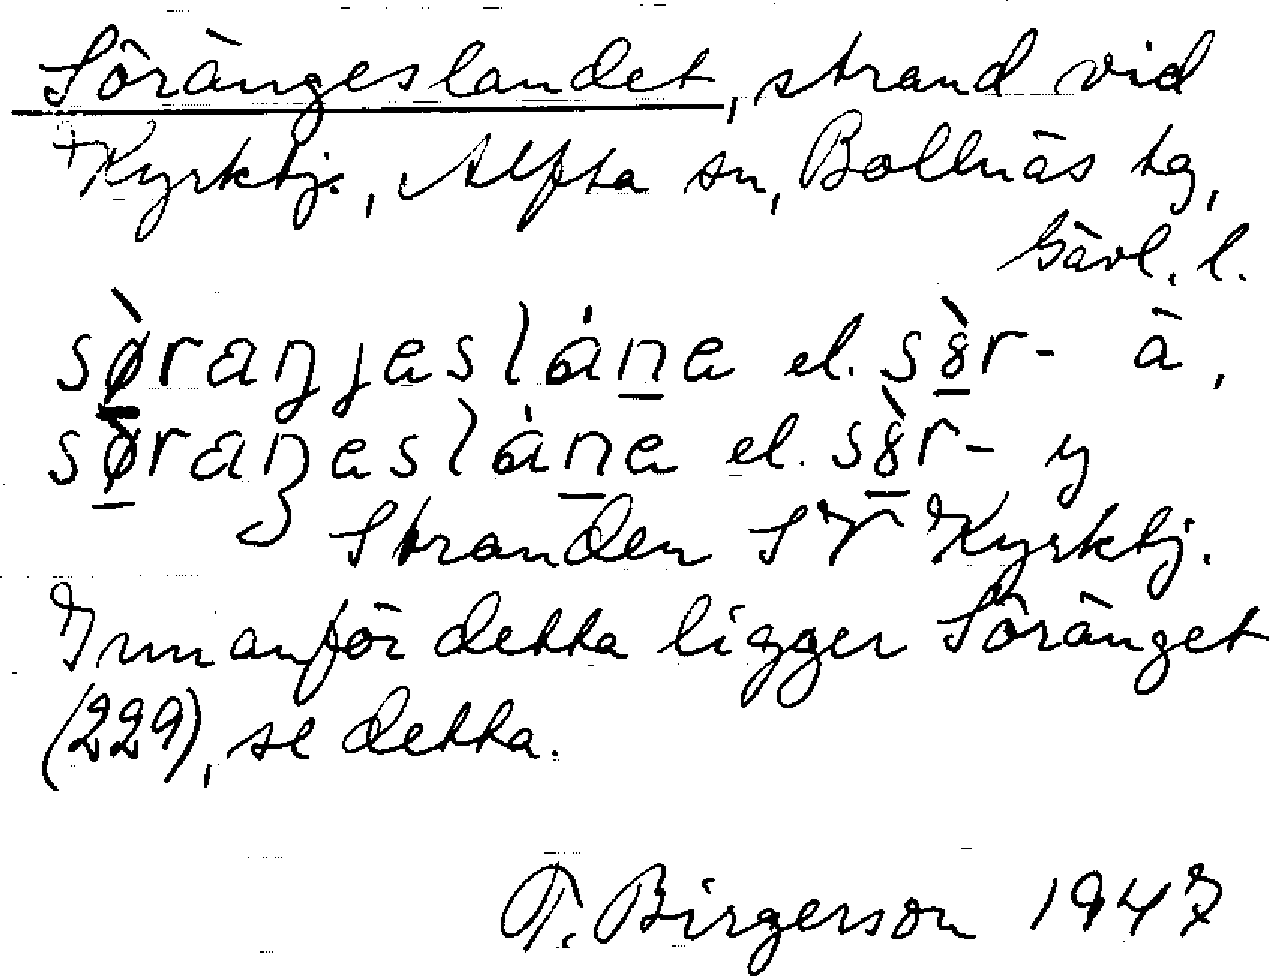 Sörängeslandet, strand vid
+Kyrkbj., Alfta sn, Bollnäs tg,
Gävl. l.
sø̀raŋjaslána el. sòr- ä,
sø̀raŋaslána el. sòr- y
Stranden SV Kyrkbj.
Innanför detta ligger Söränget
(229), se detta.
T. Birgerson 1947